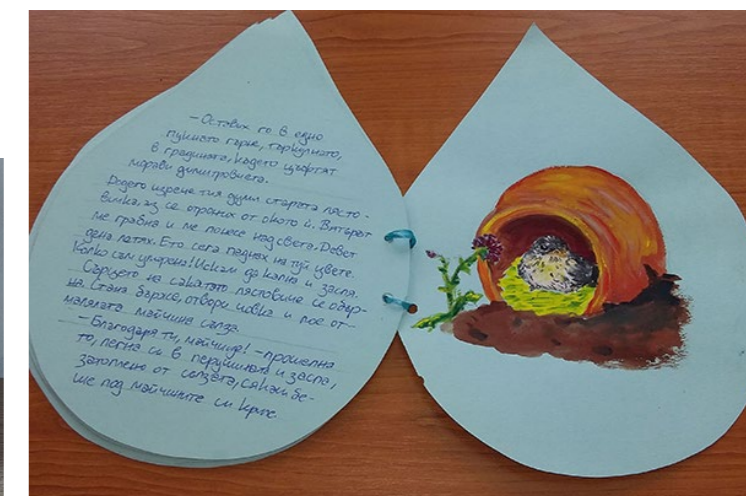 – Оставих го в едно
пукнато гърне, търкулнато,
в градината, където цъфтят
морави димитровчета.
Додето изрече тия думи старата лясто-
вичка, аз се отроних от окото ѝ. Вятърът
ме грабна и ме понесе над света. Девет
дена летях. Ето сега паднах на туй цвете.
Колко съм уморена! Искам да капна и заспя.
Сърцето на сакатото лястовиче се обър-
на. Стана бързо, отвори човка и пое от-
малялата майчина сълза.
– Благодаря ти, майчице! – прошепна
то, легна си в перушината и заспа,
затоплено от сълзата, сякаш бе-
ше под майчините си криле.